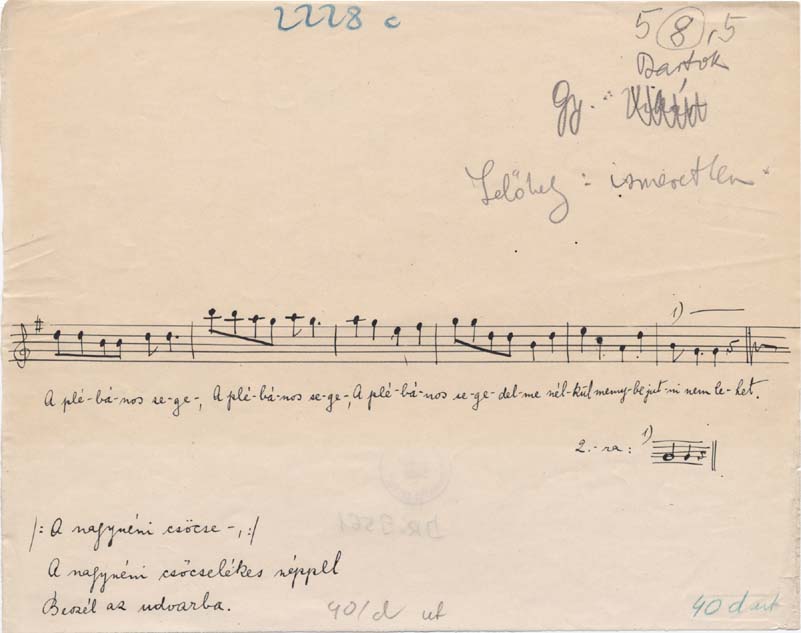 2228 c
5 (8),5
Bartok
Gy. :
Lelőhely : ismeretlen
1)
A plé-bá-nos se-ge-, A plé-bá-nos se-ge-, A plé-bá-nos se-ge-del-me nél-kül menny-be jut-ni nem le-het.
2.-ra: 1)
/: A nagynéni csöcse-, :/
A nagynéni csöcselékes néppel
Beszél az udvarba.
40/d ut
40 d art